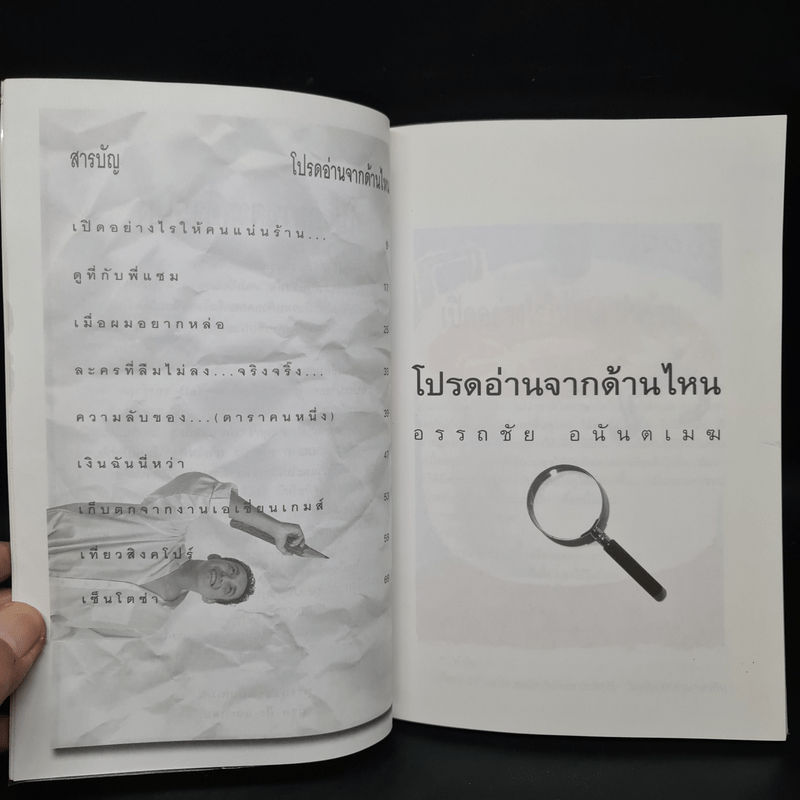 สารบัญ
โปรดอ่านจากด้านไหน
เปิดอย่างไรให้คนแน่นร้าน... 9
ดูที่กับพี่แซม 17
เมื่อผมอยากหล่อ 25
ละครที่ลืมไม่ลง...จริงจริ๊ง... 33
ความลับของ...(ดาราคนหนึ่ง) 39
เงินฉันนี่หว่า 47
เก็บตกจากงานเอเชี่ยนเกมส์ 53
เที่ยวสิงคโปร์ 59
เซ็นโตซ่า 69
โปรดอ่านจากด้านไหน
อรรถชัย อนันตเมฆ